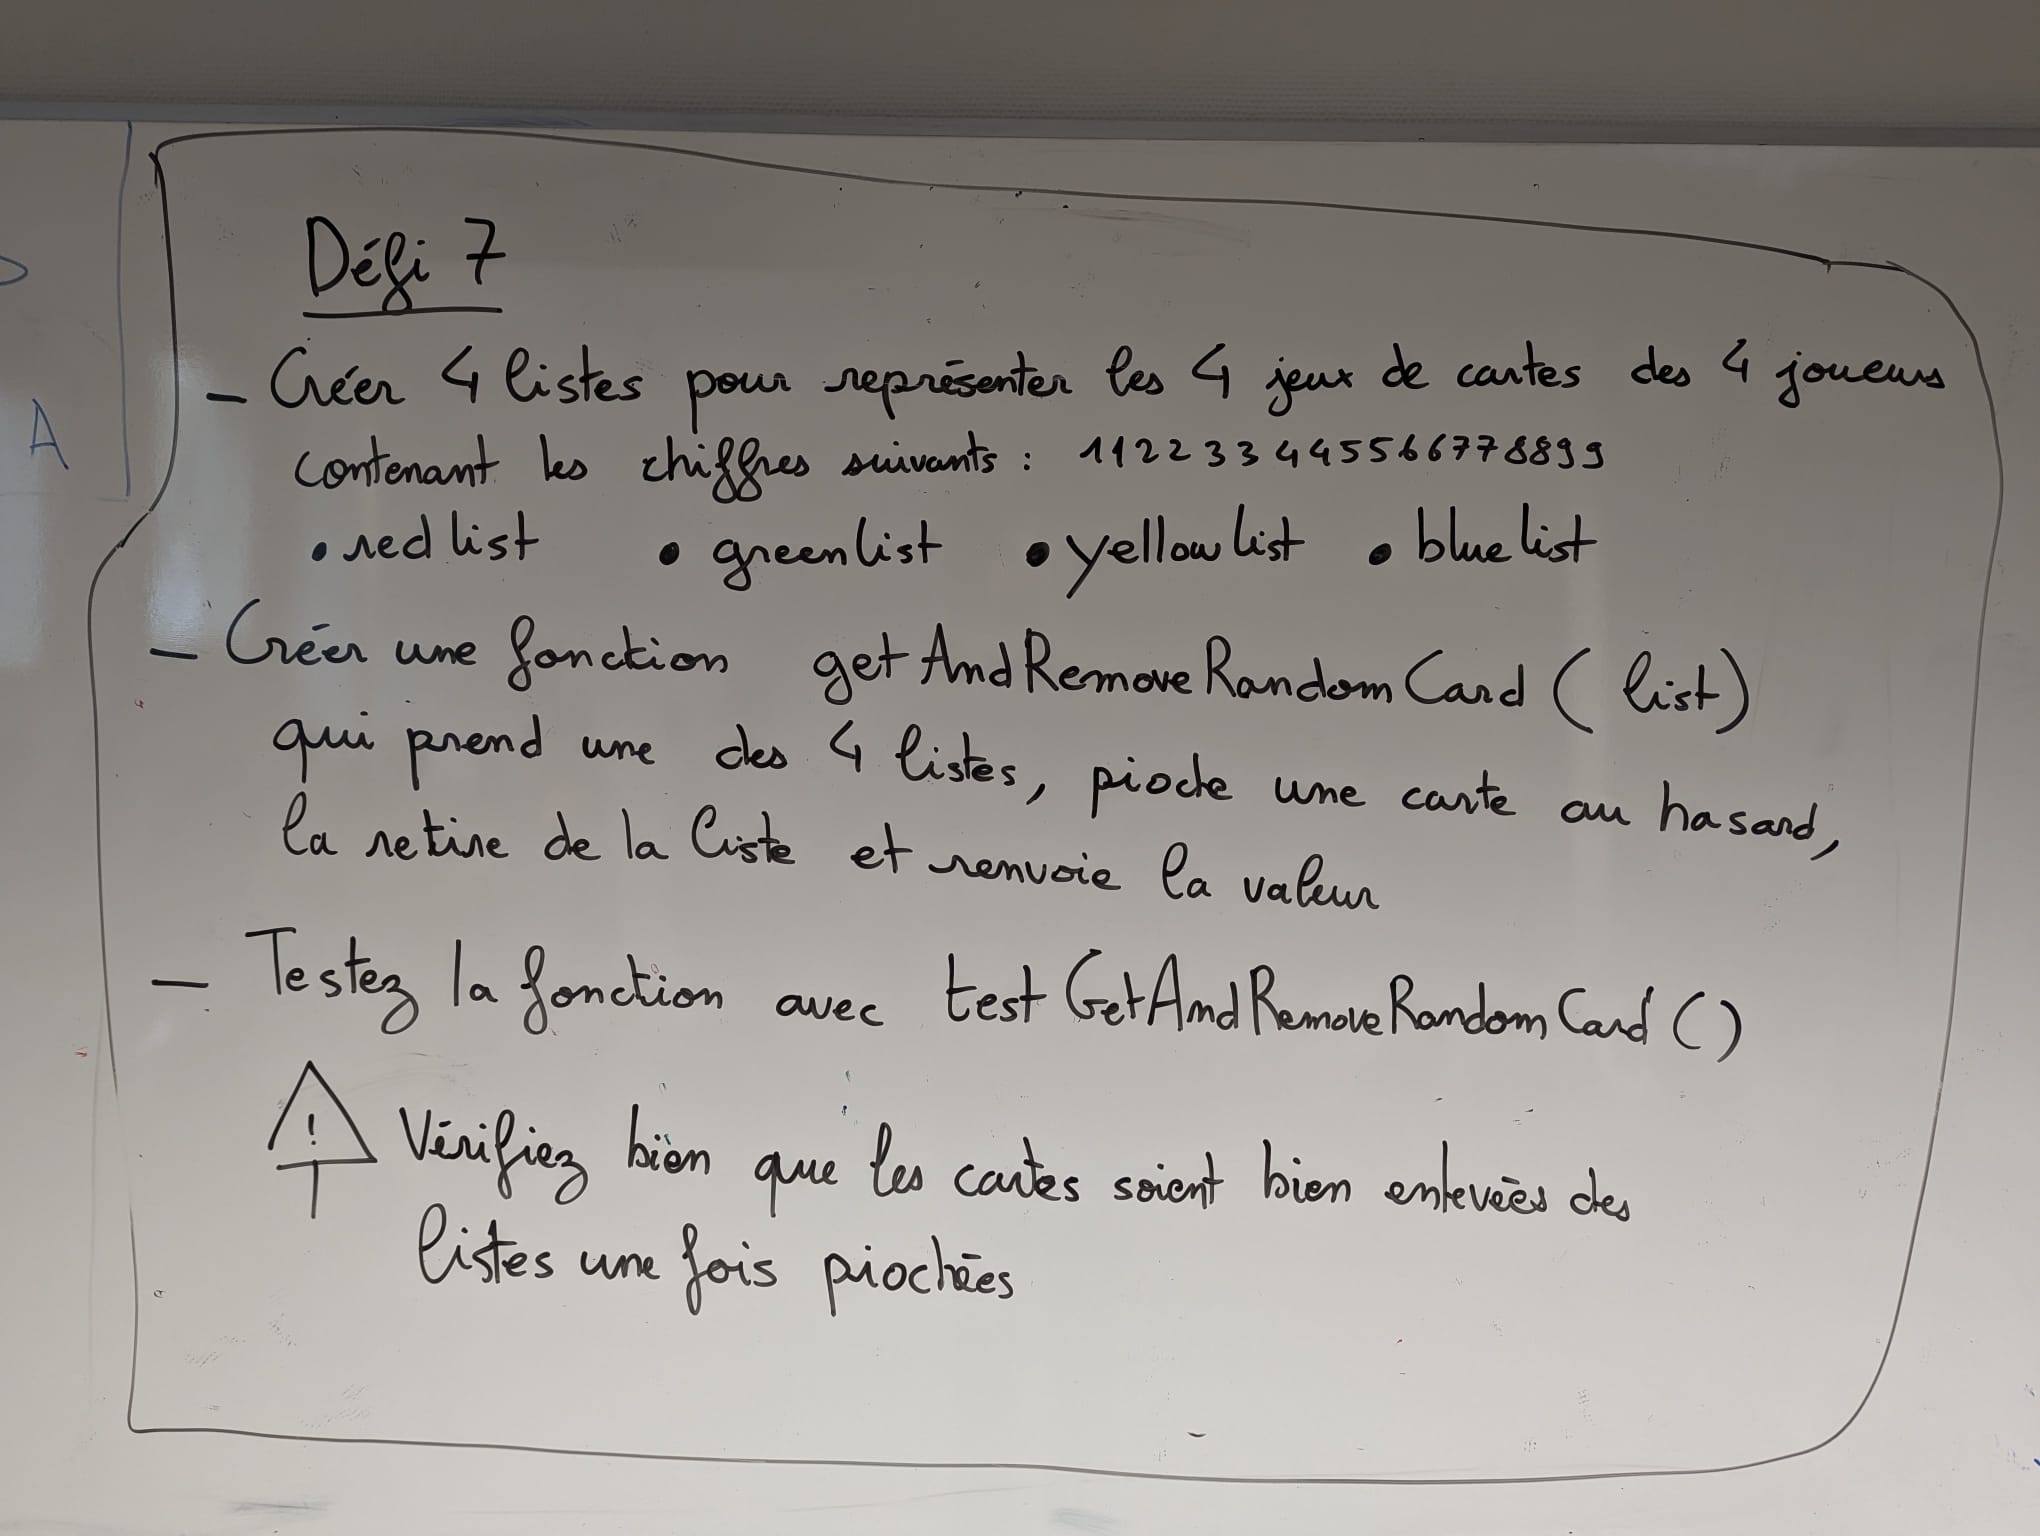 A
Défi 7
- Créer 4 listes pour représenter les 4 jeux de cartes des 4 joueurs
contenant les chiffres suivants : 112233445566778899
• redlist • greenlist • yellowlist • bluelist
- Créer une fonction getAndRemoveRandomCard (list)
qui prend une des 4 listes, pioche une carte au hasard,
la retire de la liste et renvoie la valeur
- Testez la fonction avec testGetAndRemoveRandomCard ()
! Vérifiez bien que les cartes soient bien enlevées des
listes une fois piochées